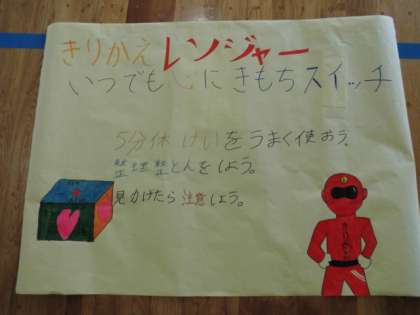 きりかえレンジャー
いつでも心にきもちスイッチ
5分休けいをうまく使おう。
整理整とんをしよう。
見かけたら注意しよう。